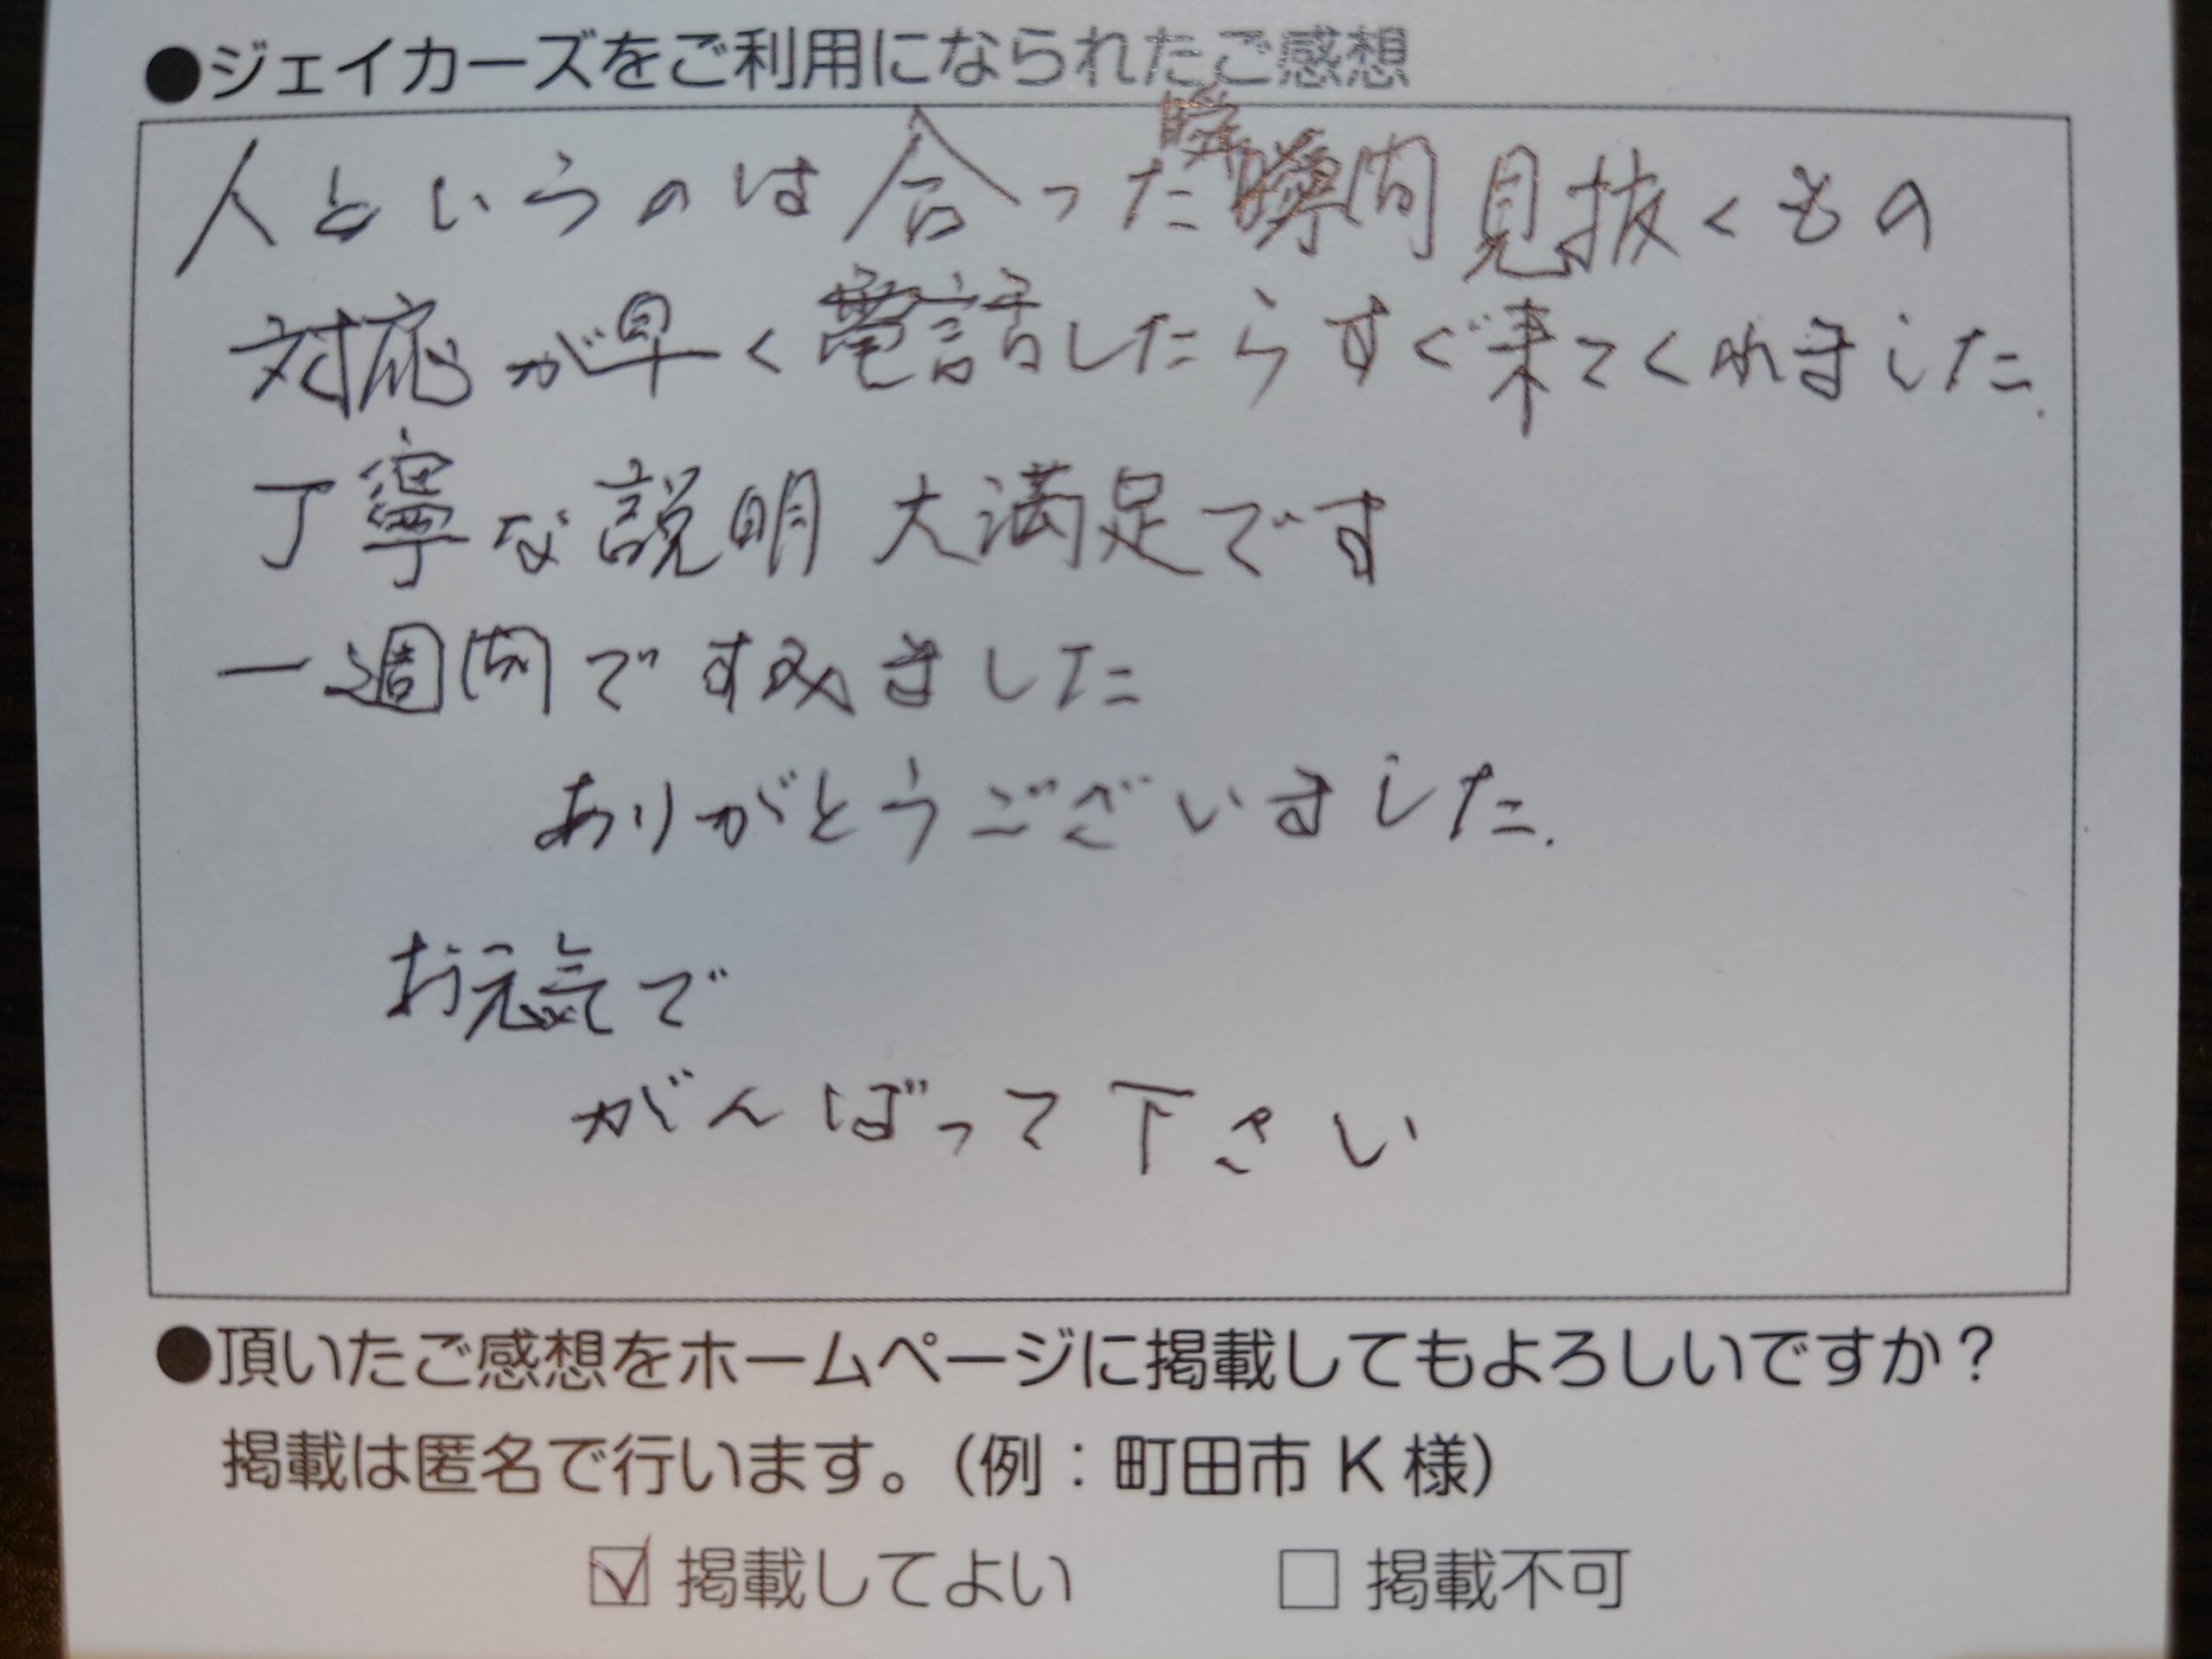 ●ジェイカーズをご利用になられたご感想
瞬
人というのは合った瞬間見抜くもの
対応が早く電話したらすぐ来てくれました.
丁寧な説明 大満足です
一週間ですみました
ありがとうございました.
お元気で
がんばって下さい
●頂いたご感想をホームページに掲載してもよろしいですか？
掲載は匿名で行います。（例：町田市 K 様）
☑ 掲載してよい □ 掲載不可